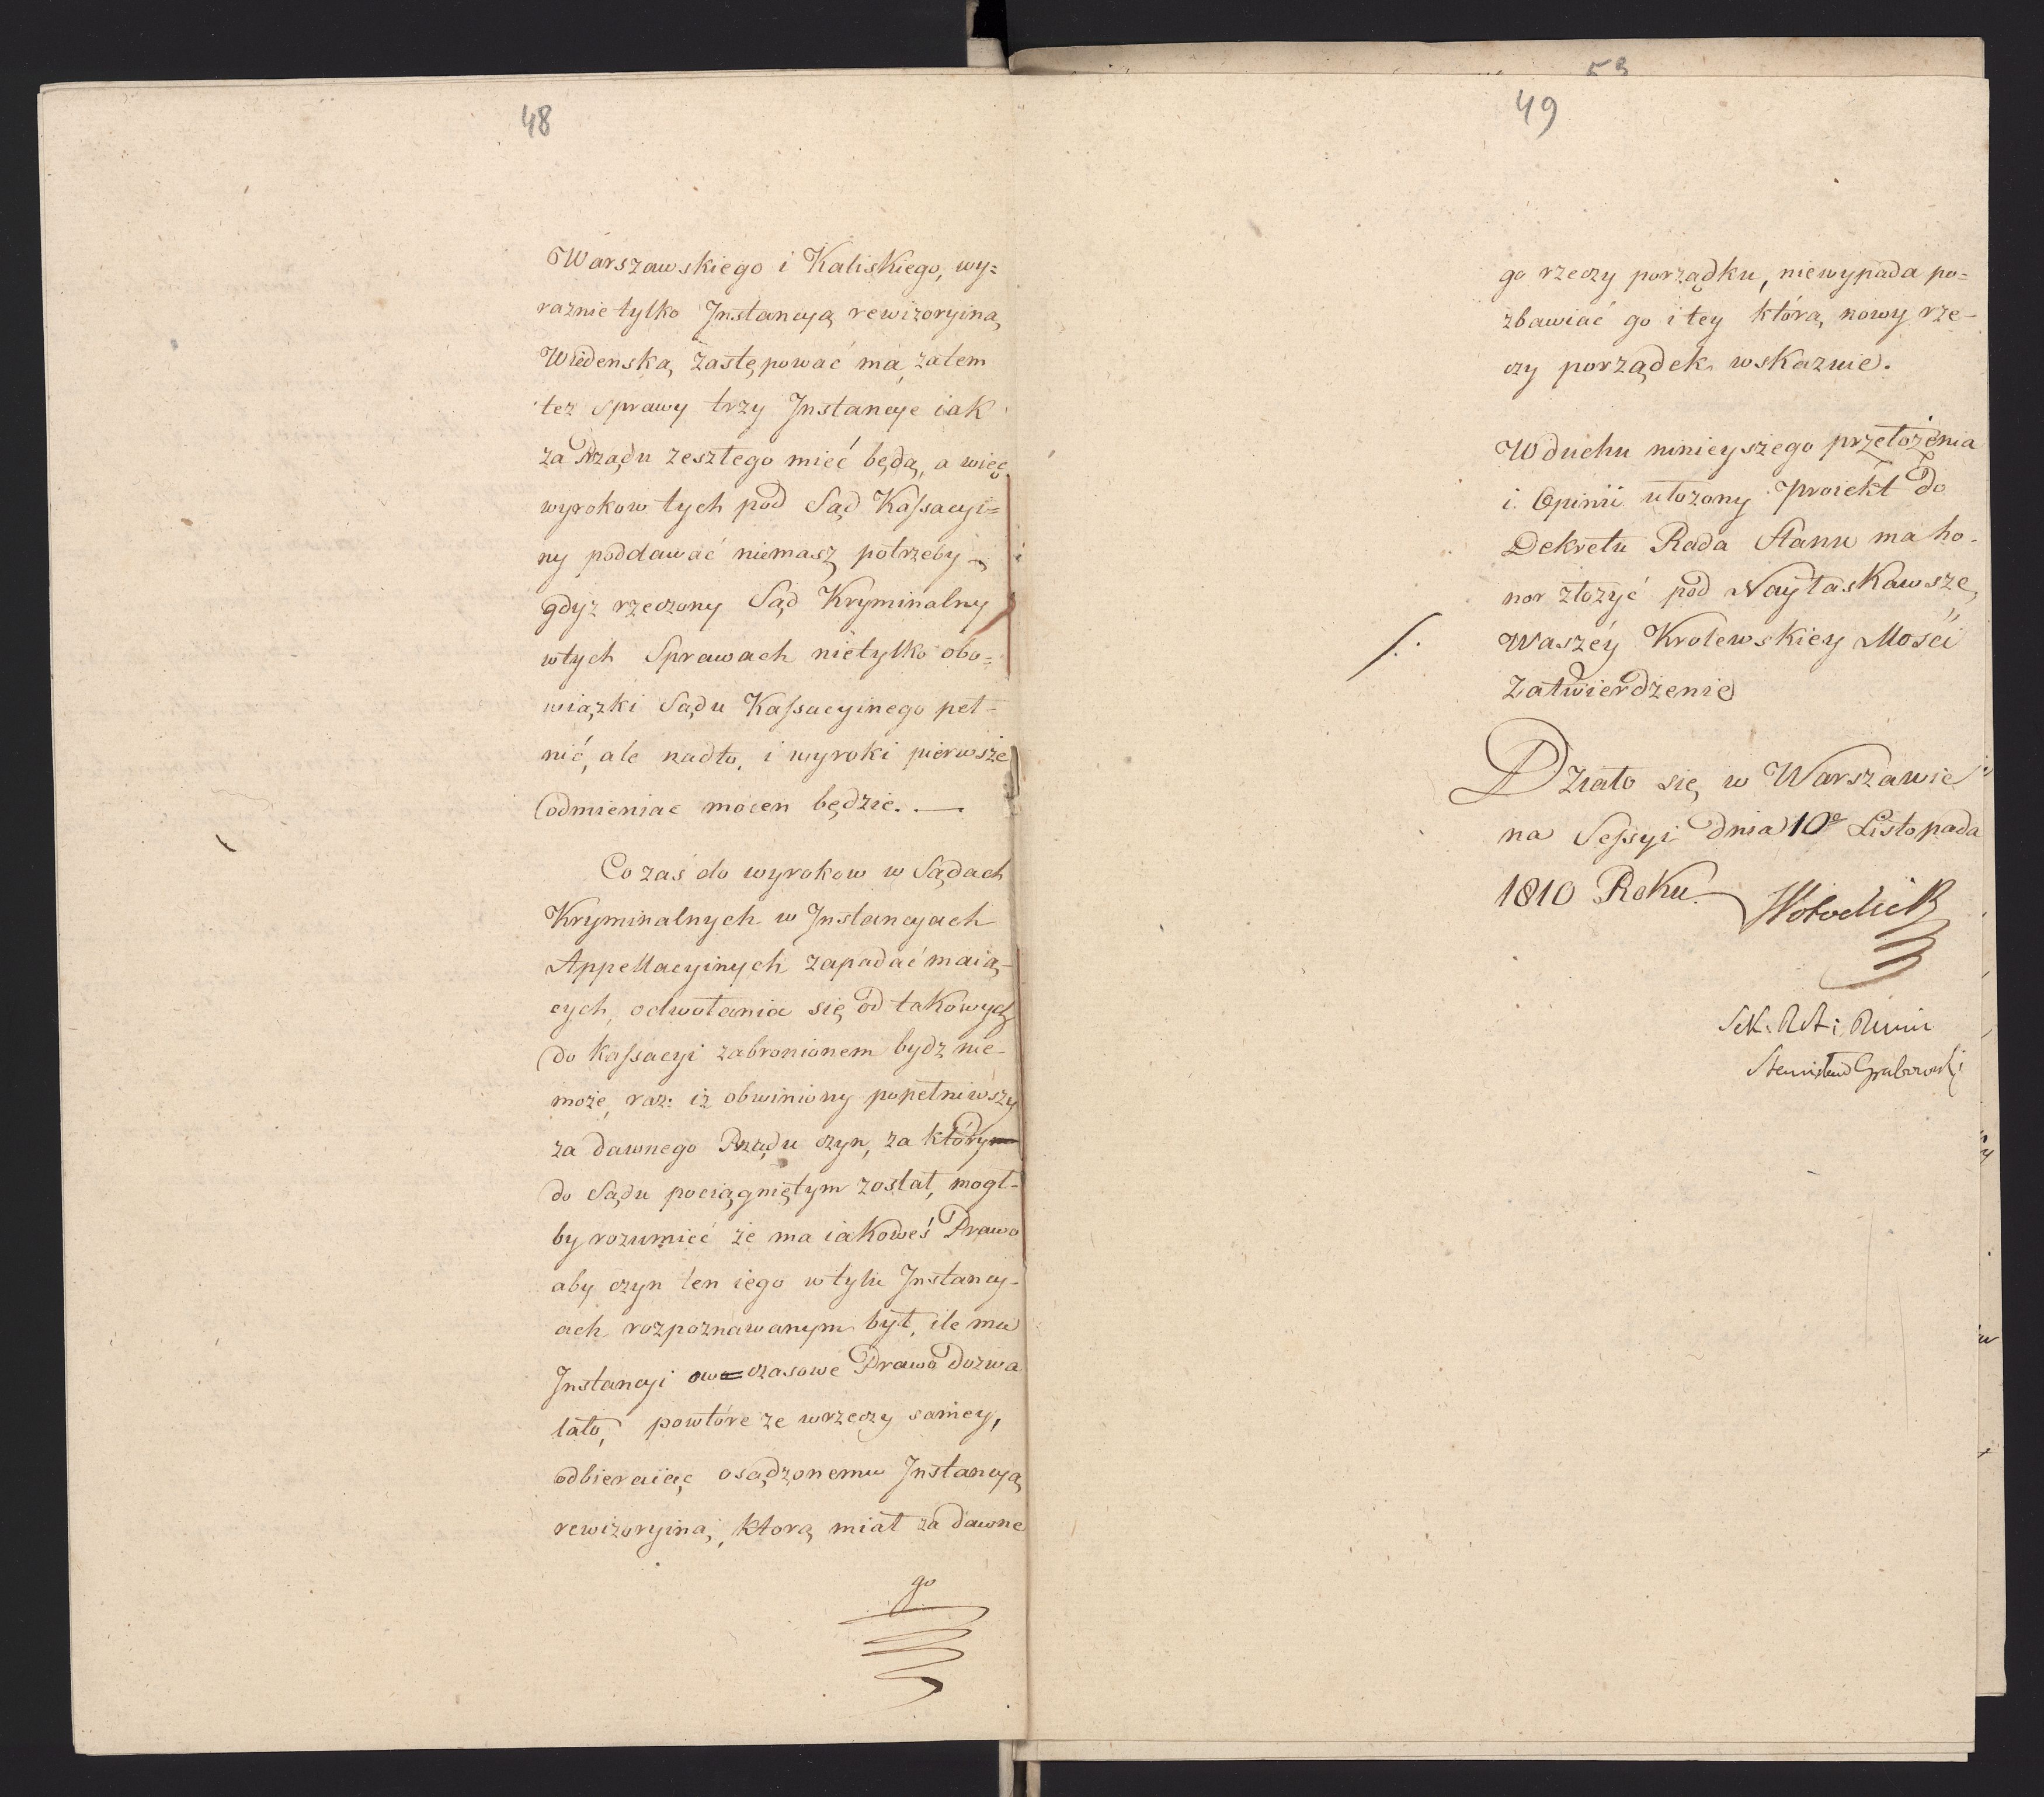 48
Warszawskiego i Kaliskiego, wy=
raznie tylko Jnstancyą rewizoryiną
Wiedenską zastępować ma, zatem
tez sprawy trzy Jnstancye iak
za Rządu zeszłego mieć będą, a więc
wyrokow tych pod Sąd Kassacyi=
ny poddawać niemasz potrzeby —
gdyz rzeczony Sąd Kryminalny
wtych Sprawach nietylko obo=
wiązki Sądu Kassacyinego peł-
nić, ale nadto, i wyroki pierwsze
odmieniac mocen będzie. —
Co zaś do wyrokow w Sądach
Kryminalnych w Jnstancyach
Appellacyinych zapadać maią-
cych, odwołania się od takowych
do kassacyi zabronionem bydz nie-
może, raz: iż obwiniony popełniwszy
za dawnego Rządu czyn, za który
do Sądu pociągniętym został, mogł-
by rozumieć że ma iakoweś Prawo
aby czyn ten iego w tylu Jnstancy-
ach rozpoznawanym był, ile mu
Jnstancyi owo=czasowe Prawo dozwa
lało, powtóre ze wrzeczy samey,
odbieraiąc osądzonemu Jnstancyą
rewizoryiną, ktorą miał za dawne
go
53
49
go rzeczy porządku, niewypada po=
zbawiać go i tey którą nowy rze-
czy porządek wskazuie.
W duchu ninieyszego przełożenia
i Opinii ułozony Proiekt do
Dekretu Rada Stanu ma ho-
nor złożyć pod Nayłaskawsze
Waszéy Krolewskiey Mości
Zatwierdzenie
Działo się w Warszawie
na Sessyi dnia 10º Listopada
1810 Roku.
Stanisław Grabowski